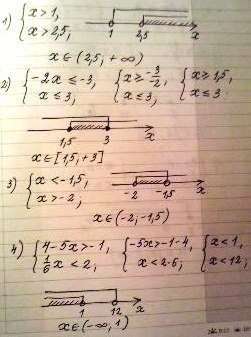 1) { x > 1,
x > 2,5,
1 2,5 x
x ∈ (2,5, +∞)
2) { -2x ≤ -3, { x ≥ -3/2, { x ≥ 1,5,
x ≤ 3, x ≤ 3, x ≤ 3
1,5 3 x
x ∈ [1,5, +3]
3) { x < -1,5,
x > -2,
-2 -1,5 x
x ∈ (-2, -1,5)
4) { 4-5x > -1, { -5x > -1-4, { x < 1,
1/6 x < 2, x < 2·6, x < 12,
1 12 x
x ∈ (-∞, 1)